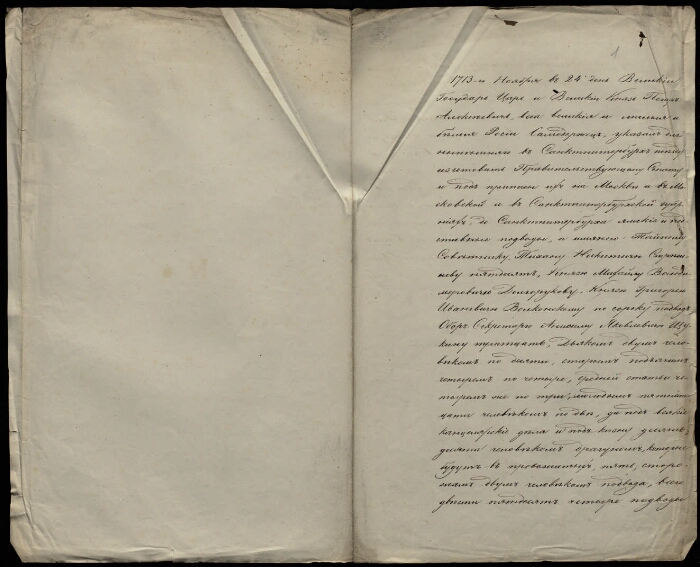 1
1713-го Ноября въ 24 день Великій
Государь Царь и Великій Князь Петръ
Алексѣевичь, всея великія и малыя и
бѣлыя Росіи Самодержецъ, указалъ для
въ Санктпитербурхъ
Правительствующему Сенату
и подъ приписи ихъ на Москвѣ и въ Мо
сковской и въ Санктпитербурхской губер
ніяхъ, до Санктпитербурха ямскія и по
ставныя подводы, а имянно - Тайному
Совѣтнику Тихону Никитичю Стрѣш
неву пятдесятъ, Князю Михайлу Володи
меровичю Долгорукову, Князю Григорью
Ивановичю Волконскому по сороку подводъ
Оберъ Секретарю Анисиму Яковлевичю Щу
кину тритцать, Дьякомъ двумъ чело
вѣкомъ по десяти, старымъ подьячимъ
четыремъ по четыре, средней статьи че
тыремъ же по три, молодымъ пятнат
цати человѣкомъ по двѣ, да подъ всякіе
канцелярскіе дѣла и подъ казну десять
десяти человѣкомъ драгуномъ, которые
будутъ въ провожатыхъ, пять, сторо
жамъ двумъ человѣкомъ подвода, всего
двѣсти пятдесятъ четыре подводы